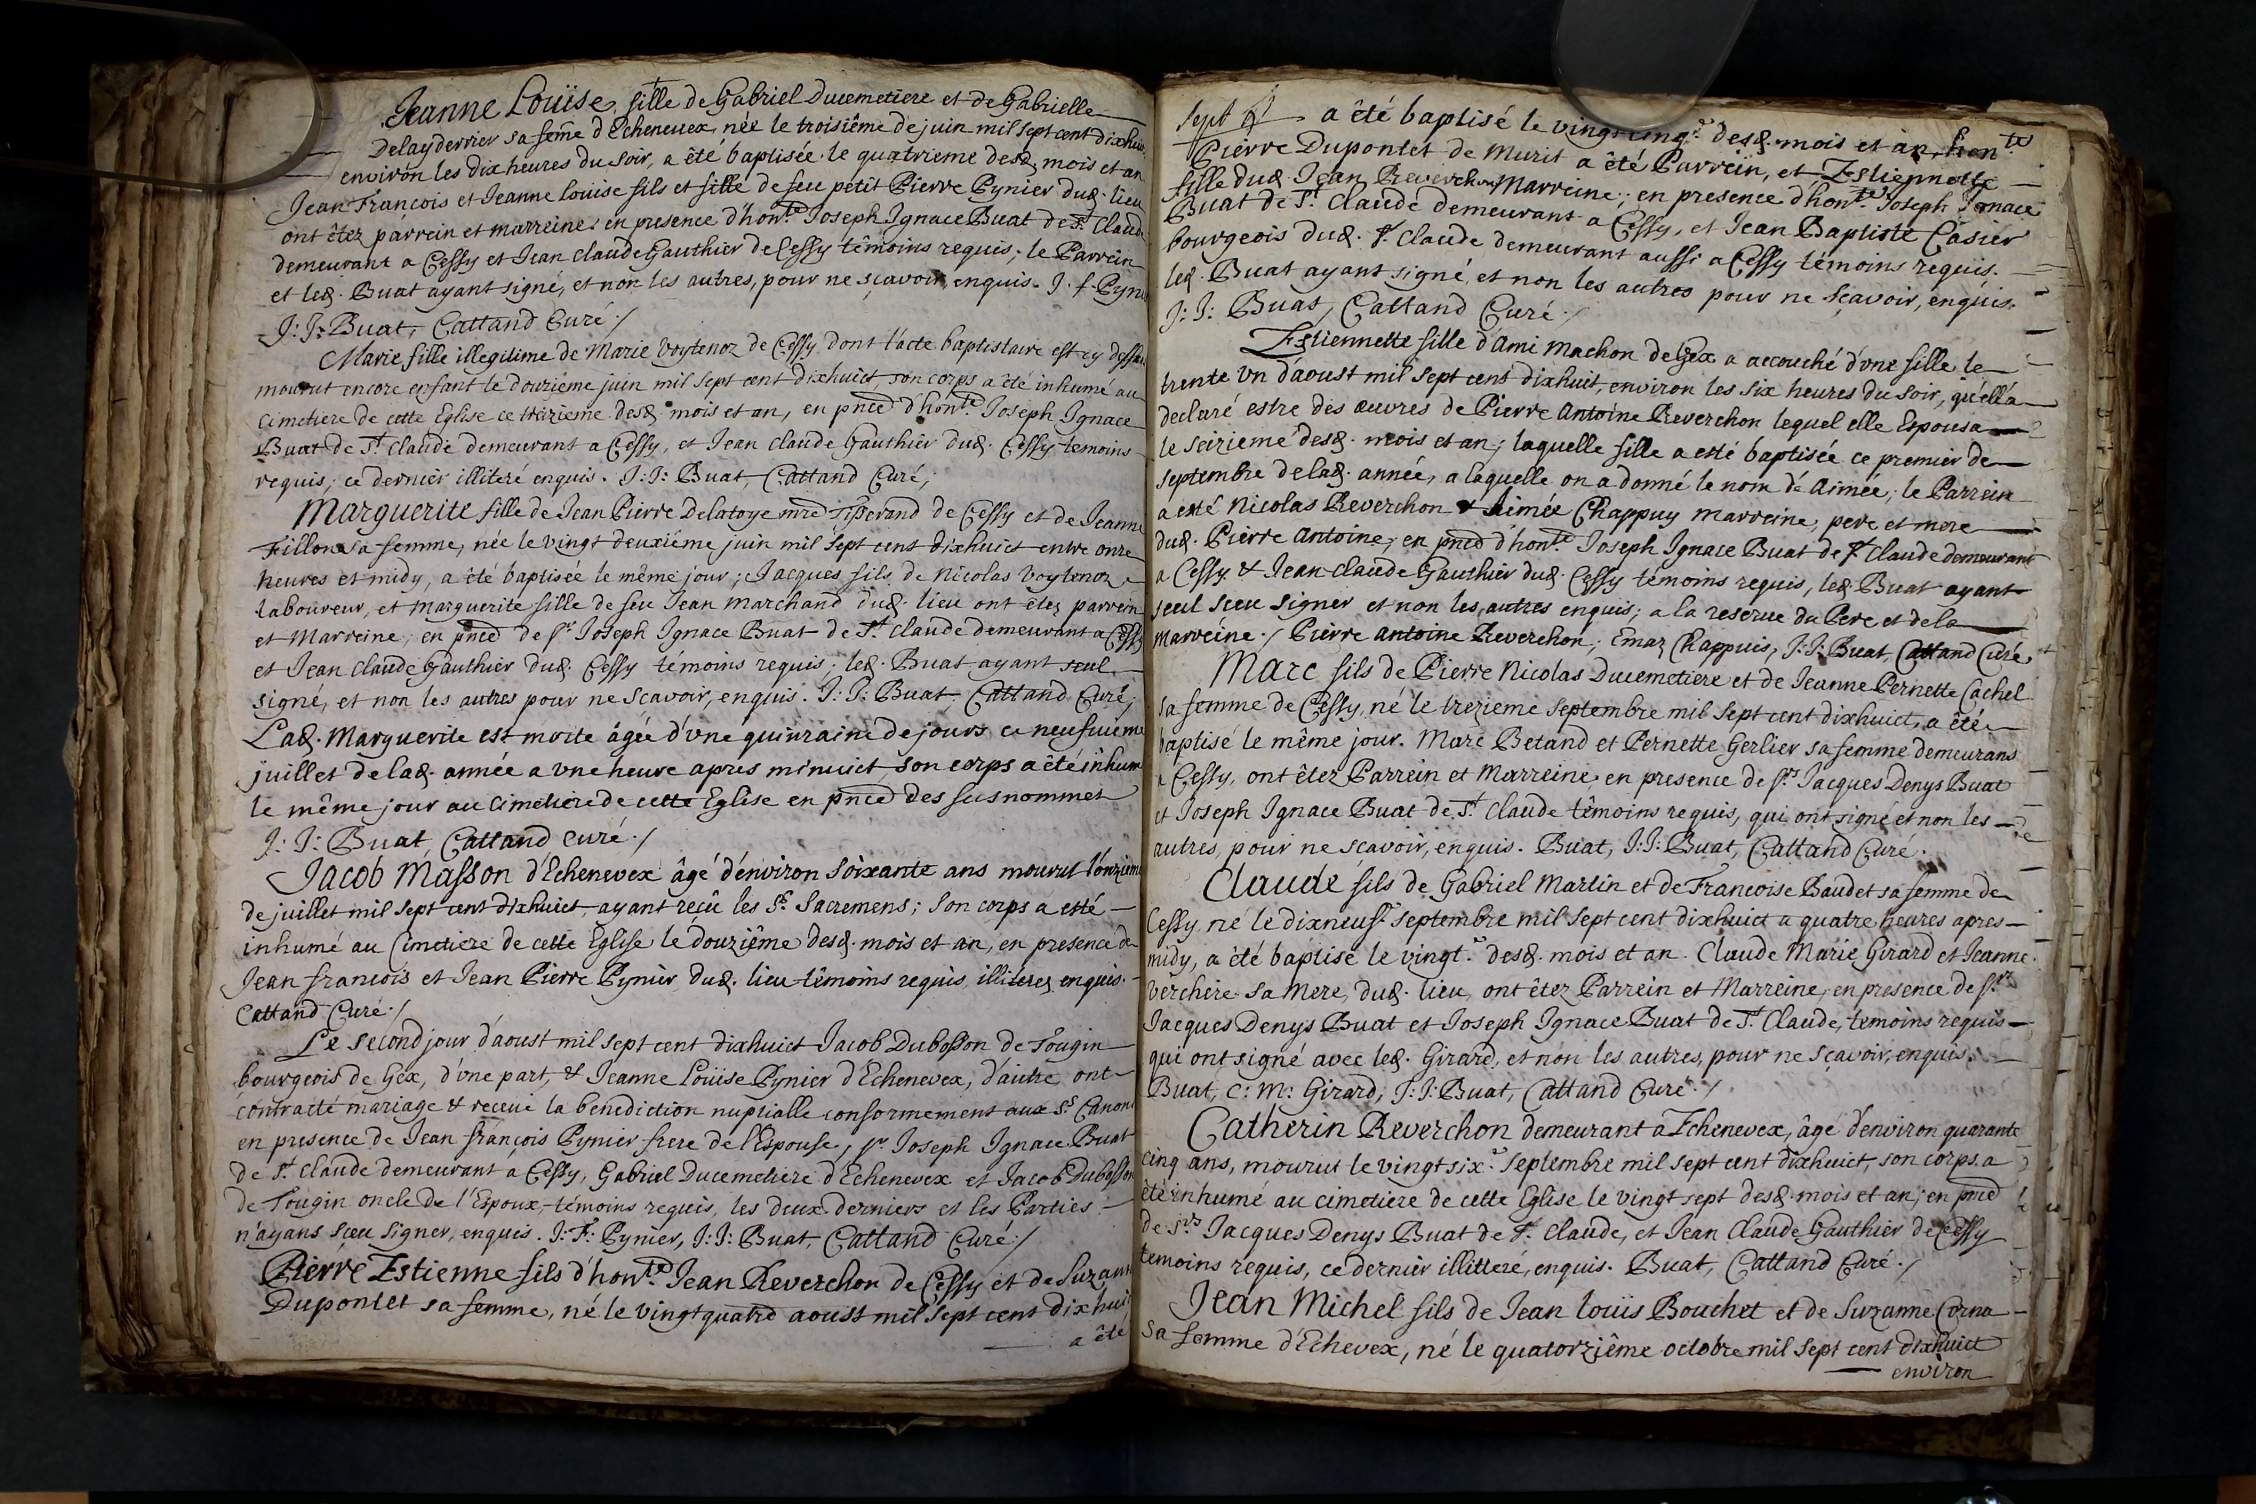 Jeanne Louïse, fille de Gabriel Ducemetiere et de Gabrielle
Delayderrier sa fem̃e d'Echenevex, née le troisiême de juin mil sept cent dixhuict
environ les dix heures du soir, a êté baptisée le quatrieme desd. mois et an
Jean François et Jeanne Louise fils et fille de feu petit Pierre Pynier dud. lieu
ont êtez parrein et marreine: en presence d'hon.te Joseph Ignace Buat de St. Claude
demeurant a Cessy et Jean Claude Gauthier de Cessy têmoins requis; le Parrein
et led. Buat ayant signé, et non les autres, pour ne sçavoir, enquis. J. f. Pynier
J: J: Buat, Cattand Curé ./
Marie fille illegitime de Marie Voytenoz de Cessy dont l'acte baptistaire est cy dessus
mourut encore enfant le douzieme juin mil sept cent dixhuict, son corps a êté inhumé au
cimetiere de cette Eglise ce treizieme desd. mois et an, en pñce d'hon.te Joseph Ignace
Buat de St. Claude demeurant a Cessy, et Jean Claude Gauthier dud. Cessy temoins
requis, ce dernier illiteré enquis. J: J: Buat, Cattand Curé;
Marguerite fille de Jean Pierre Delatoye mre Tisserand de Cessy et de Jeanne
Fillon sa femme, née le vingt deuxiême juin mil sept cent dixhuict entre onze
heures et midy, a êté baptisée le même jour; Jacques fils de Nicolas Voytenoz
laboureur, et marguerite fille de feu Jean Marchand dud. lieu ont êtez parrein
et Marreine, en pñce de sr. Joseph Ignace Buat de St. Claude demeurant a Cessy
et Jean Claude Gauthier dud. Cessy têmoins requis. led. Buat ayant seul
signé, et non les autres pour ne scavoir, enquis. J: J: Buat, Cattand Curé;
Lad. Marguerite est morte âgée d'une quinzaine de jours ce neufvieme
juillet de lad. année a vne heure apres minuict, son corps a êté inhumé
le même jour au cimetiere de cette Eglise en pñce des susnommez
J: J: Buat, Cattand curé ./
Jacob Masson d'Echenevex âgé d'environ soixante ans mourut l'onzieme
de juillet mil sept cent dixhuict, ayant reçû les Sts. Sacremens; son corps a esté
inhumé au Cimetiere de cette Eglise le douziême desd. mois et an, en presence de
Jean françois et Jean Pierre Pynier dud. lieu têmoins requis, illiterez enquis.
Cattand Curé ./
Le second jour d'aoust mil sept cent dixhuict Jacob Dubosson de Tougin
bourgeois de Gex, d'vne part, & Jeanne Louïse Pynier d'Echenevex, d'autre ont
contracté mariage & receue la benediction nuptialle conformement aux Sts. Canons
en presence de Jean françois Pynier frere de l'Espouse, sr. Joseph Ignace Buat
de St. Claude demeurant a Cessy, Gabriel Ducemetiere d'Echenevex et Jacob Dubosson
de Tougin oncle de l'Espoux, têmoins requis, les deux derniers et les Parties
n'ayans sceu signer, enquis. J: F: Pynier, J: J: Buat, Cattand Curé ./
Pierre Estienne fils d'hon.te Jean Reverchon de Cessy et de Suzanne
Dupontet sa femme, né le vingt quatre aoust mil sept cent dixhuict
a êté
Sept a êté baptisé le vingt cinq.e desd. mois et an, hon.te
Pierre Dupontet de Murit a êté Parrein, et Estiennette
fille dud. Jean Reverchon Marreine; en presence d'hon.te Joseph Ignace
Buat de St. Claude demeurant a Cessy, et Jean Baptiste Casier
bourgeois dud. St. Claude demeurant aussi a Cessy témoins requis.
led. Buat ayant signé, et non les autres pour ne sçavoir, enquis.
J: J: Buat, Cattand Curé ./
Estiennette fille d'Ami Machon de Gex a accouché d'vne fille le
trente vn d'aoust mil sept cent dixhuit, environ les six heures du soir, qu'ell'a
declaré estre des œuvres de Pierre Antoine Reverchon lequel elle Espousa
le seizieme desd. mois et an; laquelle fille a esté baptisée ce premier de
septembre de lad. année, a laquelle on a donné le nom d'Aimée, le Parrein
a esté Nicolas Reverchon & Aimée Chappuy marreine, pere et mere
dud. Pierre Antoine, en pñce d'hon.te Joseph Ignace Buat de St Claude demeurant
a Cessy & Jean Claude Gauthier dud. Cessy témoins requis, led. Buat ayant
seul sceu signer et non les autres enquis; a la reserue du Pere et de la
marreine ./ Pierre Antoine Reverchon; Emaz Chappuis, J: J: Buat, Cattand Curé
Marc fils de Pierre Nicolas Ducemetiere et de Jeanne Pernette Cachel
sa femme de Cessy, né le trezieme septembre mil sept cent dixhuict, a êté
baptisé le même jour. Marc Betand et Pernette Gerlier sa femme demeurans
a Cessy, ont êtez Parrein et Marreine, en presence de srs Jacques Denys Buat
et Joseph Ignace Buat de St. Claude têmoins requis, qui ont signé et non les
autres, pour ne sçavoir, enquis. Buat, J: J: Buat, Cattand Curé.
Claude fils de Gabriel Martin et de Francoise Baudet sa femme de
Cessy né le dixneuf.e septembre mil sept cent dixhuict a quatre heures apres
midy, a êté baptisé le vingt.e desd. mois et an. Claude Marie Girard et Jeanne
Verchere sa Mere, dud. lieu, ont êtez Parrein et Marreine, en presence de srs
Jacques Denys Buat et Joseph Ignace Buat de St. Claude, temoins requis
qui ont signé avec led. Girard, et non les autres, pour ne sçavoir, enquis.
Buat, C: M: Girard, J: J: Buat, Cattand Curé ./
Catherin Reverchon demeurant a Echenevex, âgé d'environ quarante
cinq ans, mourut le vingt six.e septembre mil sept cent dixhuict, son corps a
êté inhumé au cimetiere de cette Eglise le vingt sept desd. mois et an; en pñce
de srs Jacques Denys Buat de St. Claude, et Jean Claude Gauthier de Cessy
temoins requis, ce dernier illitteré, enquis. Buat, Cattand Curé ./
Jean Michel fils de Jean Louïs Bouchet et de Suzanne Corna
sa femme d'Echevex, né le quatorziême octobre mil sept cent dixhuict
environ